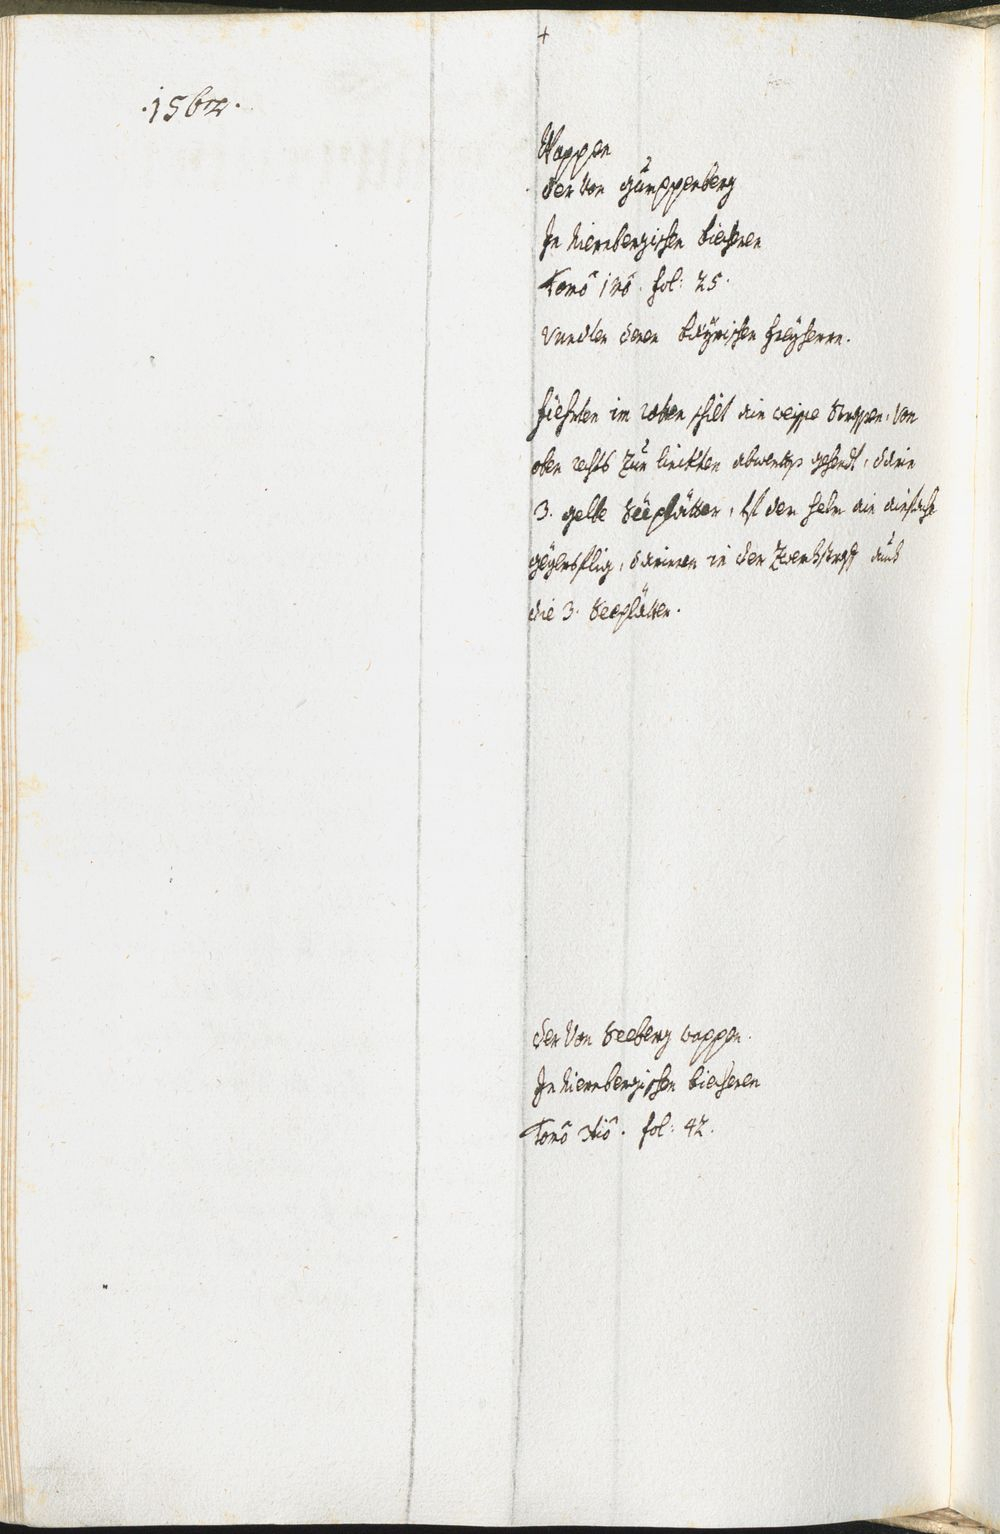 +
·1562·
Wappen
der Von Gumppenberg
In Niernbergischen Biecheren
Tomô 1mô. fol: 25.
Vundter denen bäyrischen freyherrn.
fiehrten im rothen schilt ain weisse strassen, Von
oben rechts Zur linckhen abwerts gehendt, darin
3. gelbe Seeplätter, Uf dem helm ain ainfache
gegenflig, darinnen in der Zwerchstrass auch
die 3. Seeplätter.
der Von Seeberg wappen.
In Niernbergischen Biecheren
Tomô 3tiô. fol: 42.